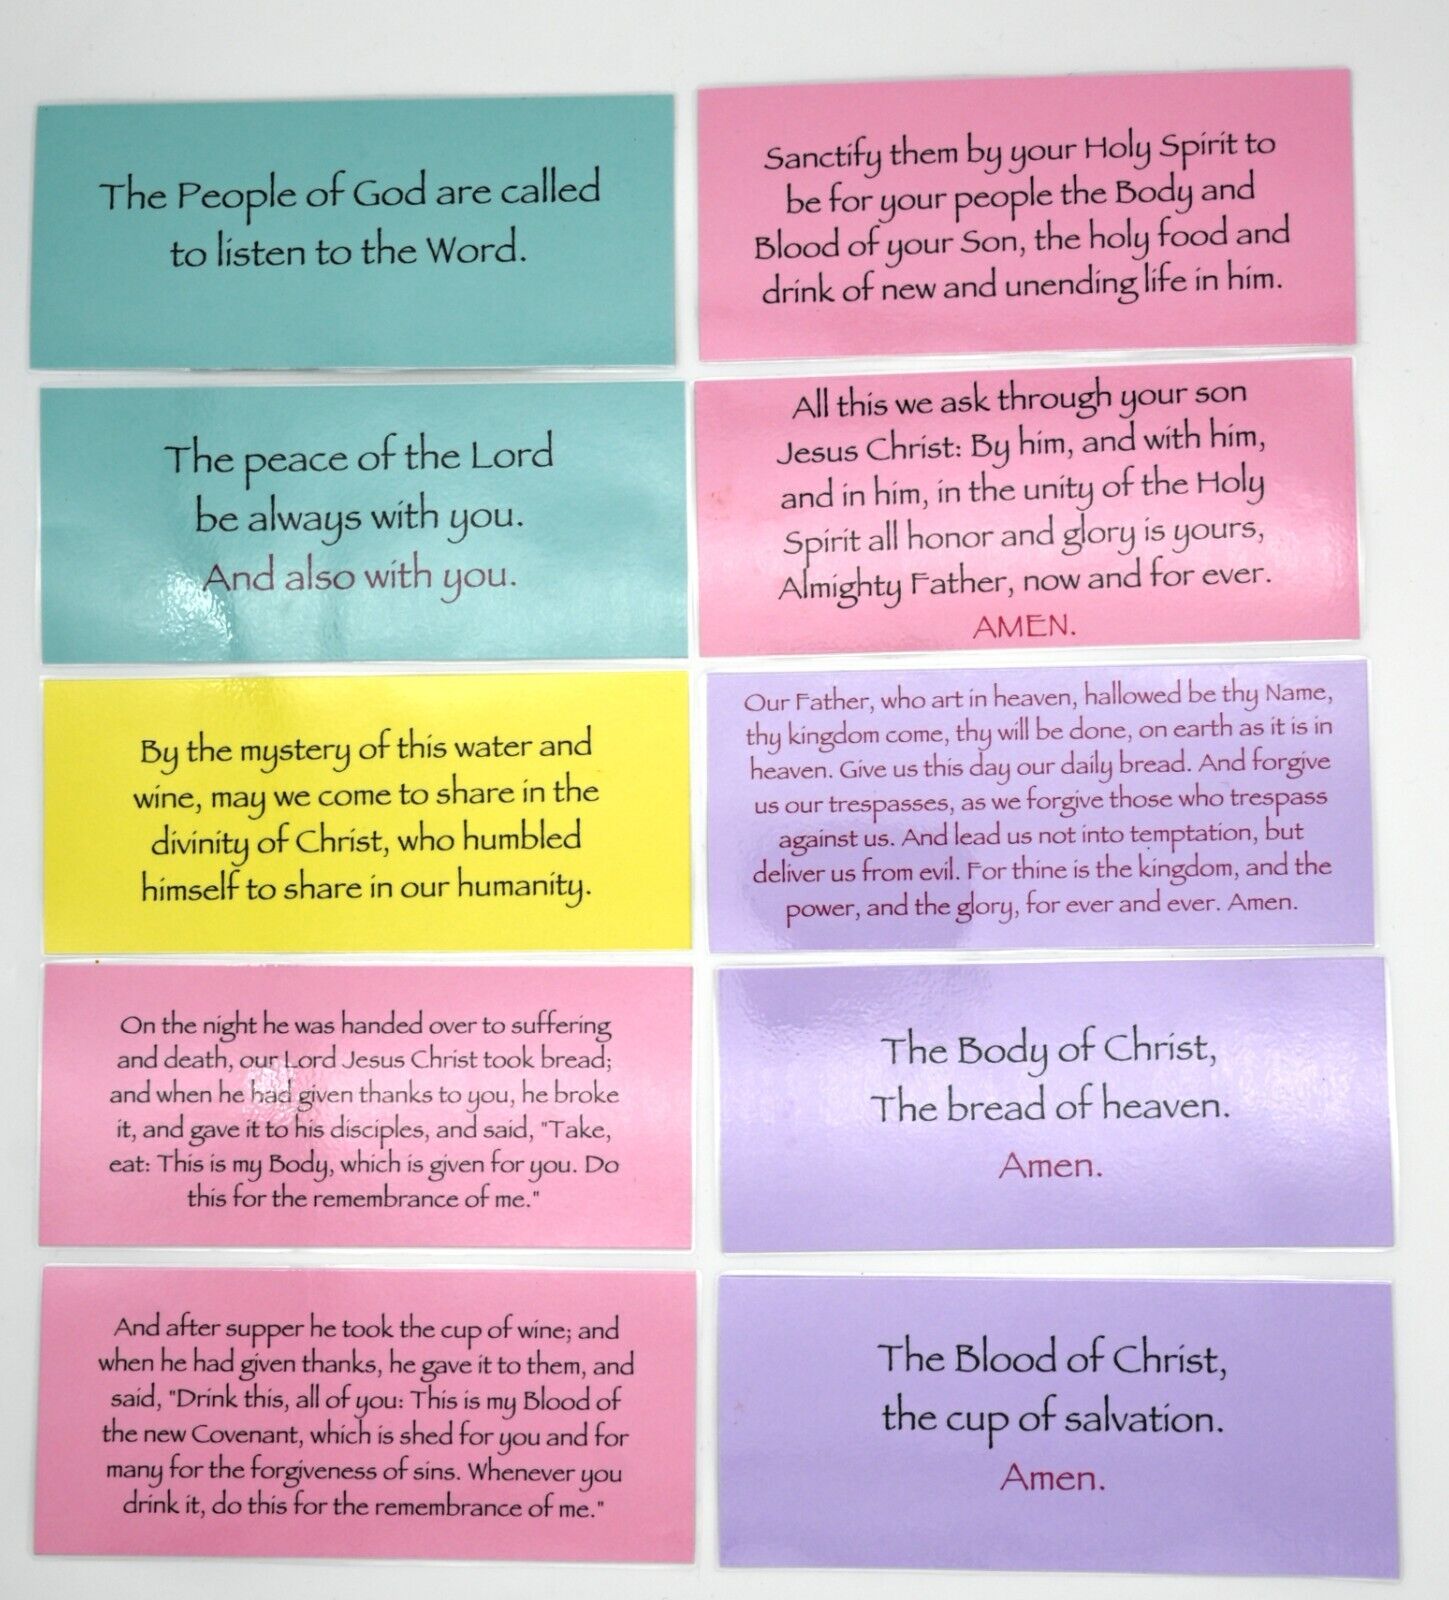 The People of God are called
to listen to the Word.
The peace of the Lord
be always with you.
And also with you.
By the mystery of this water and
wine, may we come to share in the
divinity of Christ, who humbled
himself to share in our humanity.
On the night he was handed over to suffering
and death, our Lord Jesus Christ took bread;
and when he had given thanks to you, he broke
it, and gave it to his disciples, and said, "Take,
eat: This is my Body, which is given for you. Do
this for the remembrance of me."
And after supper he took the cup of wine; and
when he had given thanks, he gave it to them, and
said, "Drink this, all of you: This is my Blood of
the new Covenant, which is shed for you and for
many for the forgiveness of sins. Whenever you
drink it, do this for the remembrance of me."
Sanctify them by your Holy Spirit to
be for your people the Body and
Blood of your Son, the holy food and
drink of new and unending life in him.
All this we ask through your son
Jesus Christ: By him, and with him,
and in him, in the unity of the Holy
Spirit all honor and glory is yours,
Almighty Father, now and for ever.
AMEN.
Our Father, who art in heaven, hallowed be thy Name,
thy kingdom come, thy will be done, on earth as it is in
heaven. Give us this day our daily bread. And forgive
us our trespasses, as we forgive those who trespass
against us. And lead us not into temptation, but
deliver us from evil. For thine is the kingdom, and the
power, and the glory, for ever and ever. Amen.
The Body of Christ,
The bread of heaven.
Amen.
The Blood of Christ,
the cup of salvation.
Amen.